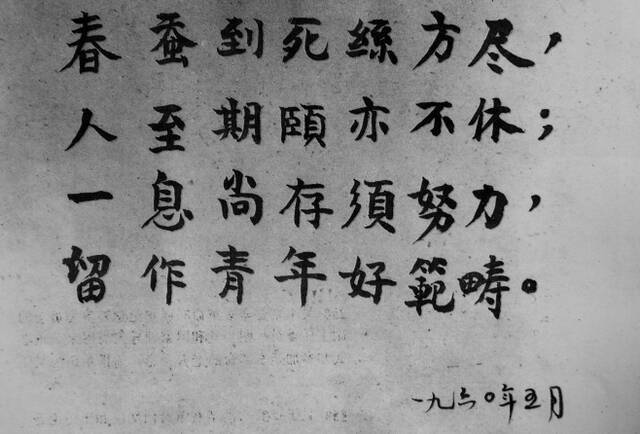 春蚕到死絲方尽，
人至期頤亦不休；
一息尚存須努力，
留作青年好範畴。
一九六〇年五月